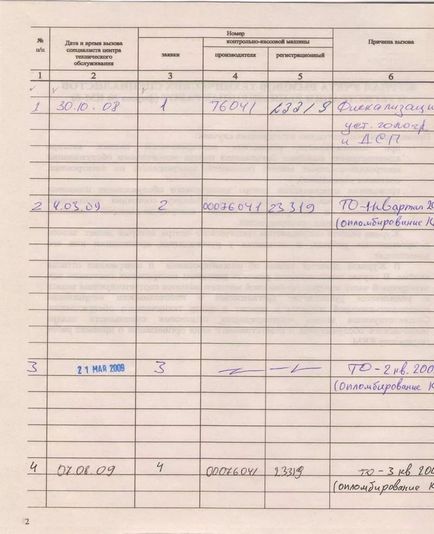 № п/п
Дата и время вызова специалиста центра технического обслуживания
Номер
заявки
контрольно-кассовой машины
производителя
регистрационный
Причина вызова
1 2 3 4 5 6
1 30.10.08 1 76041 23319 Фискализаци
уст. гологр
и ДСП
2 4.03.09 2 00076041 23319 ТО-1квартал 20
(опломбирование К
3 21 МАЙ 2009 3 ТО-2 кв. 200
(опломбирование К
4 07.08.09 4 00076041 23319 ТО-3 кв 200
(опломбирование К
2